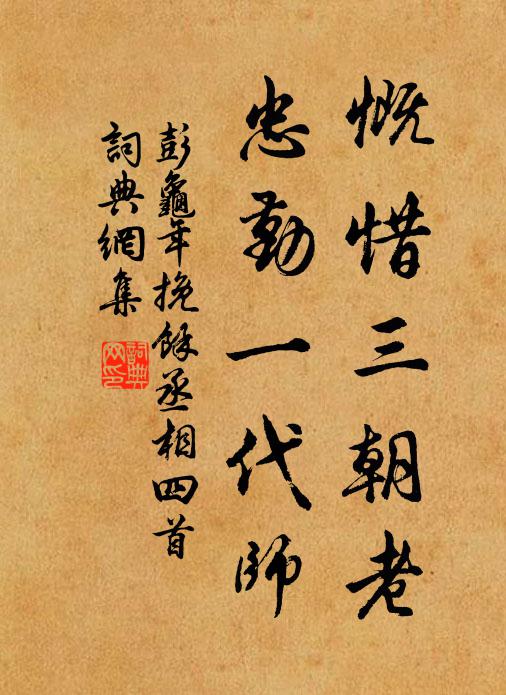 慨惜三朝老
忠勤一代師
彭龜年挽餘丞相四首
詞典網集
詞典网印